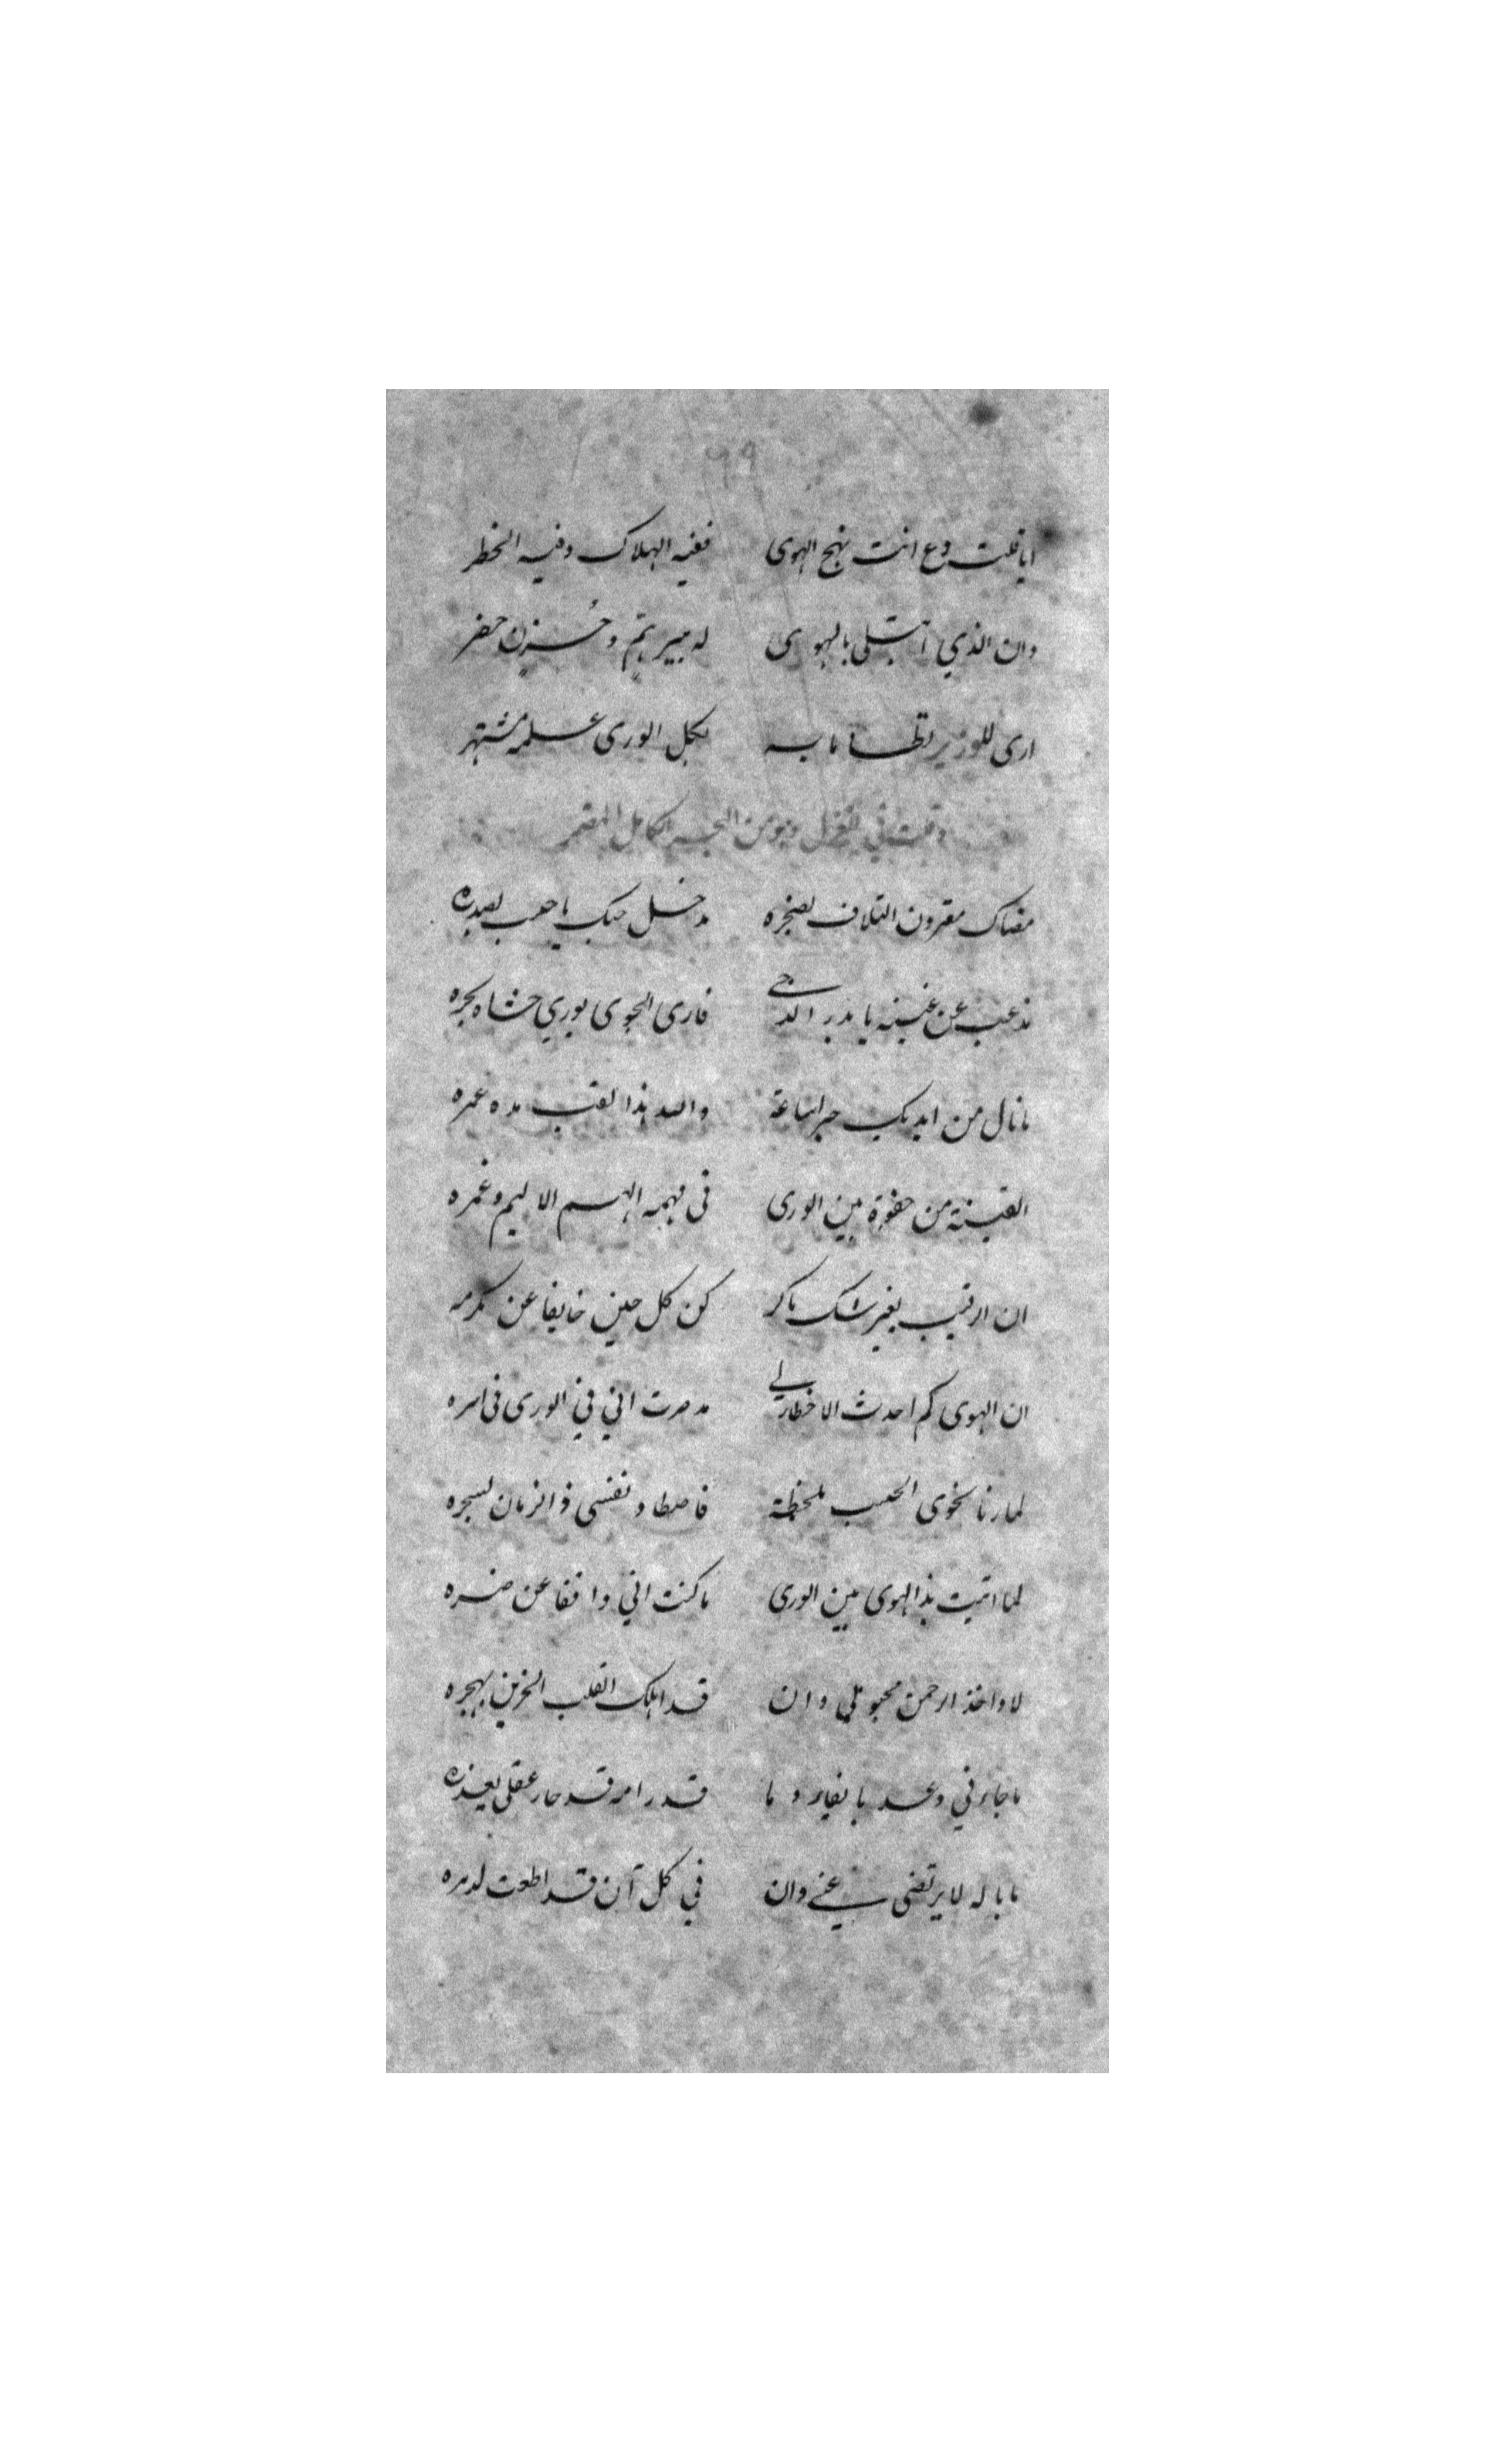 ٩٩
ايا قلب دع انت نهج الهوى ففيه الهلاك وفيه الخطر
وان الذي ابتلى بالهوى له سير هم وحزن حضر
ارى للوزير لظا ما به لكل الورى علمه مشتهر
وقلت في التغزل وهو من البحر الكامل المضمر
مضناك مقرون التلاف بضجره مد حل حبك يا حبيب بصدره
مذ غبت عن عينيه يا بدر الدجى فارى الجوى يوري حشاه بجره
ما نال من ايديك جبرا ساعة والله هذا القلب مده عمره
القيته من حفوة بين الورى في مهمه الهم الاليم وغمره
ان الرقيب بغير شك ماكر كن كل حين خايفا عن مكره
ان الهوى كم احدث الاخطار لي مد صرت اني في الورى في اسره
لما رنا نحوى الحبيب بلحظة فاصطاد نفسى ذا الزمان بسحره
لما اتيت بذا الهوى بين الورى ما كنت اني واقفا عن ضره
لا واخذ الرحمن محبوبي وان قد اهلك القلب الحزين بهجره
ما جاءني وعد بايفاء وما قد رامه قد حار عقلي بعذره
ما باله لا يرتضى عني وان في كل آن قد اطعت لامره